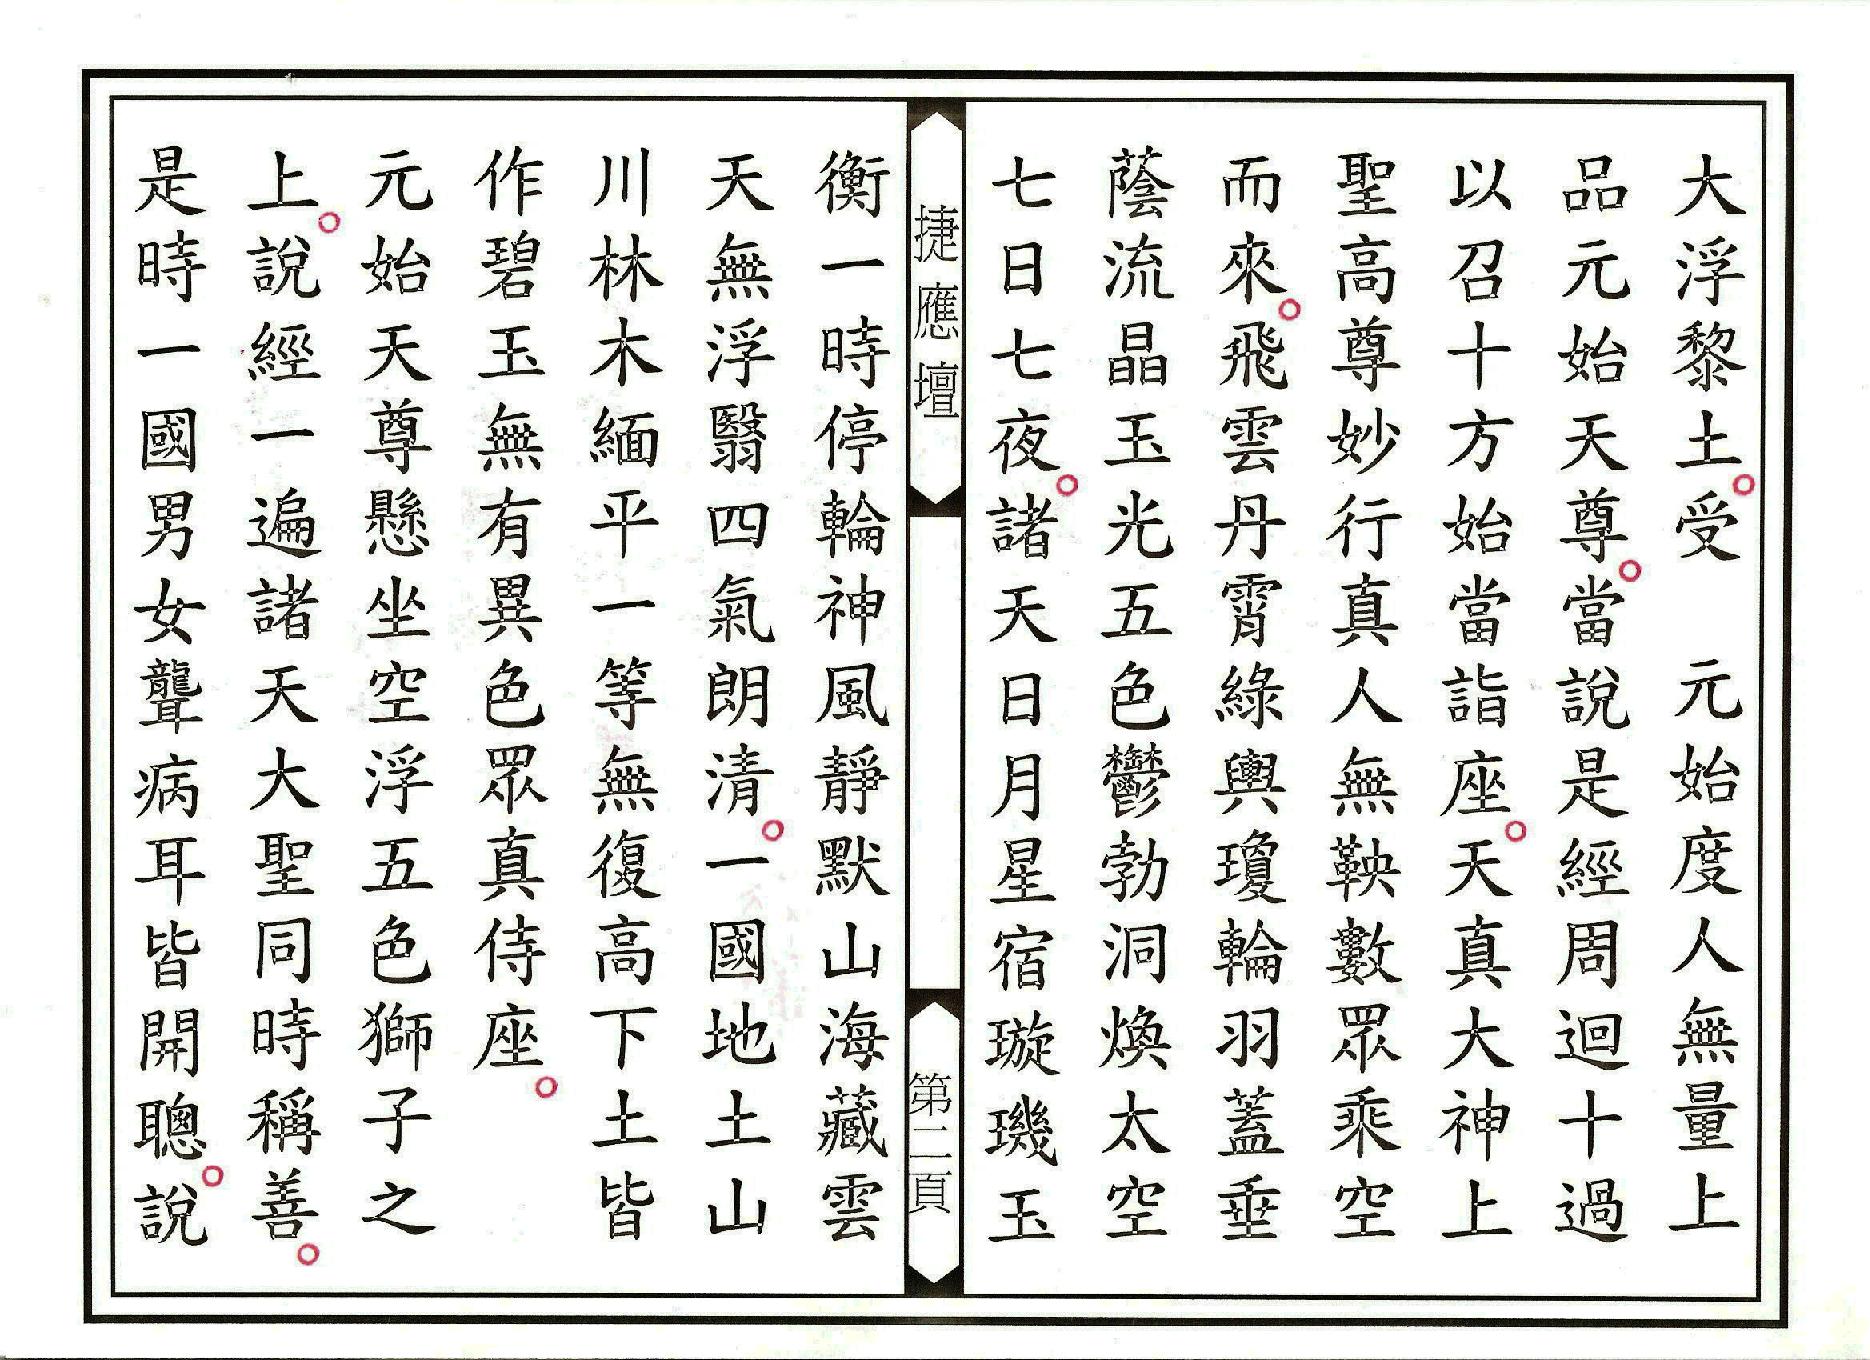 大浮黎土。受　元始度人無量上
品元始天尊。當說是經周迴十過
以召十方始當詣座。天真大神上
聖高尊妙行真人無鞅數眾乘空
而來。飛雲丹霄綠輿瓊輪羽蓋垂
蔭流晶玉光五色鬱勃洞煥太空
七日七夜。諸天日月星宿璇璣玉
捷應壇
第二頁
衡一時停輪神風靜默山海藏雲
天無浮翳四氣朗清。一國地土山
川林木緬平一等無復高下土皆
作碧玉無有異色眾真侍座。
元始天尊懸坐空浮五色獅子之
上。說經一遍諸天大聖同時稱善。
是時一國男女聾病耳皆開聰。說